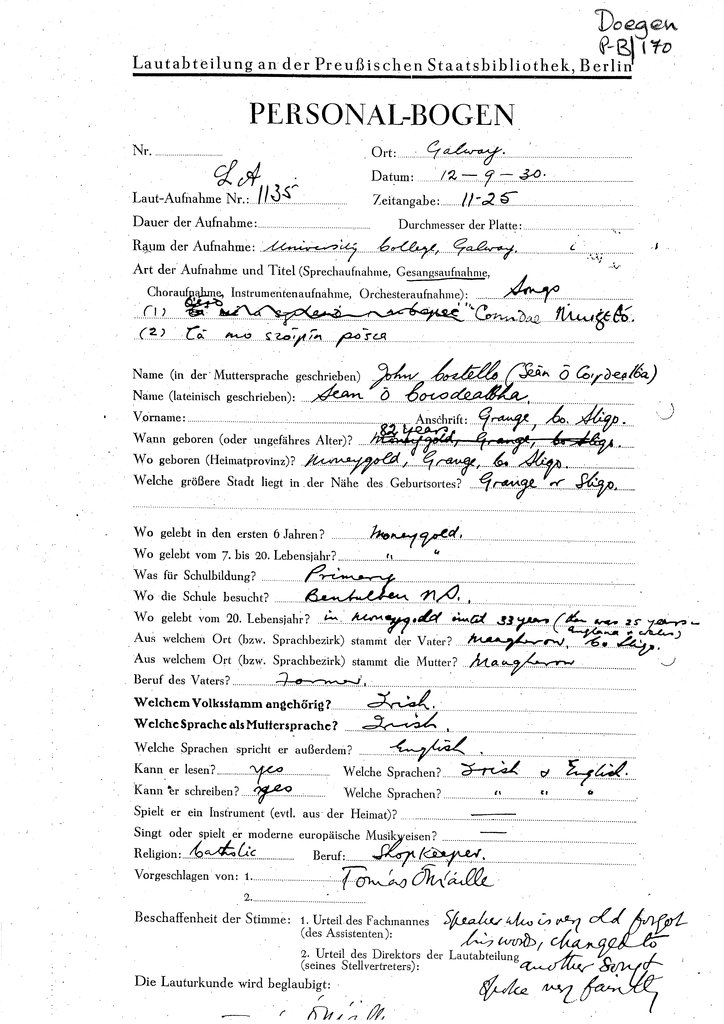 Doegen
P-B/170
Lautabteilung an der Preußischen Staatsbibliothek, Berlin
PERSONAL-BOGEN
Nr.
Ort: Galway.
Datum: 12 – 9 – 30.
LA
Laut-Aufnahme Nr.: 1135
Zeitangabe: 11-25
Dauer der Aufnahme:
Durchmesser der Platte:
Raum der Aufnahme: University College, Galway.
Art der Aufnahme und Titel (Sprechaufnahme, Gesangsaufnahme,
Choraufnahme, Instrumentenaufnahme, Orchesteraufnahme): Songs
(1)
(2) Tá mo
Name (in der Muttersprache geschrieben) John Costello (Seán ó
Name (lateinisch geschrieben): Seán ó
Vorname: Anschrift: Grange, Co. Sligo.
82 years
Wann geboren (oder ungefähres Alter)? Moneygold, Grange, Co Sligo.
Wo geboren (Heimatprovinz)? Moneygold, Grange, Co Sligo.
Welche größere Stadt liegt in der Nähe des Geburtsortes? Grange or Sligo.
Wo gelebt in den ersten 6 Jahren? Moneygold.
Wo gelebt vom 7. bis 20. Lebensjahr? " "
Was für Schulbildung? Primary
Wo die Schule besucht? Benbulben N.S.
Wo gelebt vom 20. Lebensjahr? in Moneygold until 33 years (then was 25 years –
England & Wales)
Aus welchem Ort (bzw. Sprachbezirk) stammt der Vater? Maugherow, Co. Sligo.
Aus welchem Ort (bzw. Sprachbezirk) stammt die Mutter? Maugherow
Beruf des Vaters? Farmer.
Welchem Volksstamm angehörig? Irish.
Welche Sprache als Muttersprache? Irish.
Welche Sprachen spricht er außerdem? English.
Kann er lesen? yes Welche Sprachen? Irish & English.
Kann er schreiben? yes Welche Sprachen? " " "
Spielt er ein Instrument (evtl. aus der Heimat)? —
Singt oder spielt er moderne europäische Musikweisen? —
Religion: Catholic Beruf: Shopkeeper.
Vorgeschlagen von: 1. Tomás Ó Máille
2.
Beschaffenheit der Stimme: 1. Urteil des Fachmannes (des Assistenten): Speaker who is very old forgot
his words, changed to
2. Urteil des Direktors der Lautabteilung (seines Stellvertreters): another song &
spoke very faintly
Die Lauturkunde wird beglaubigt:
Ó Máille